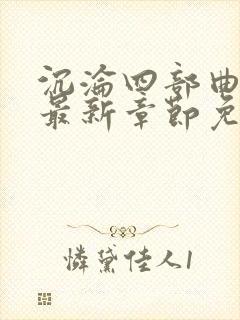 沉淪四部曲
最新章節免
憐黛佳人1